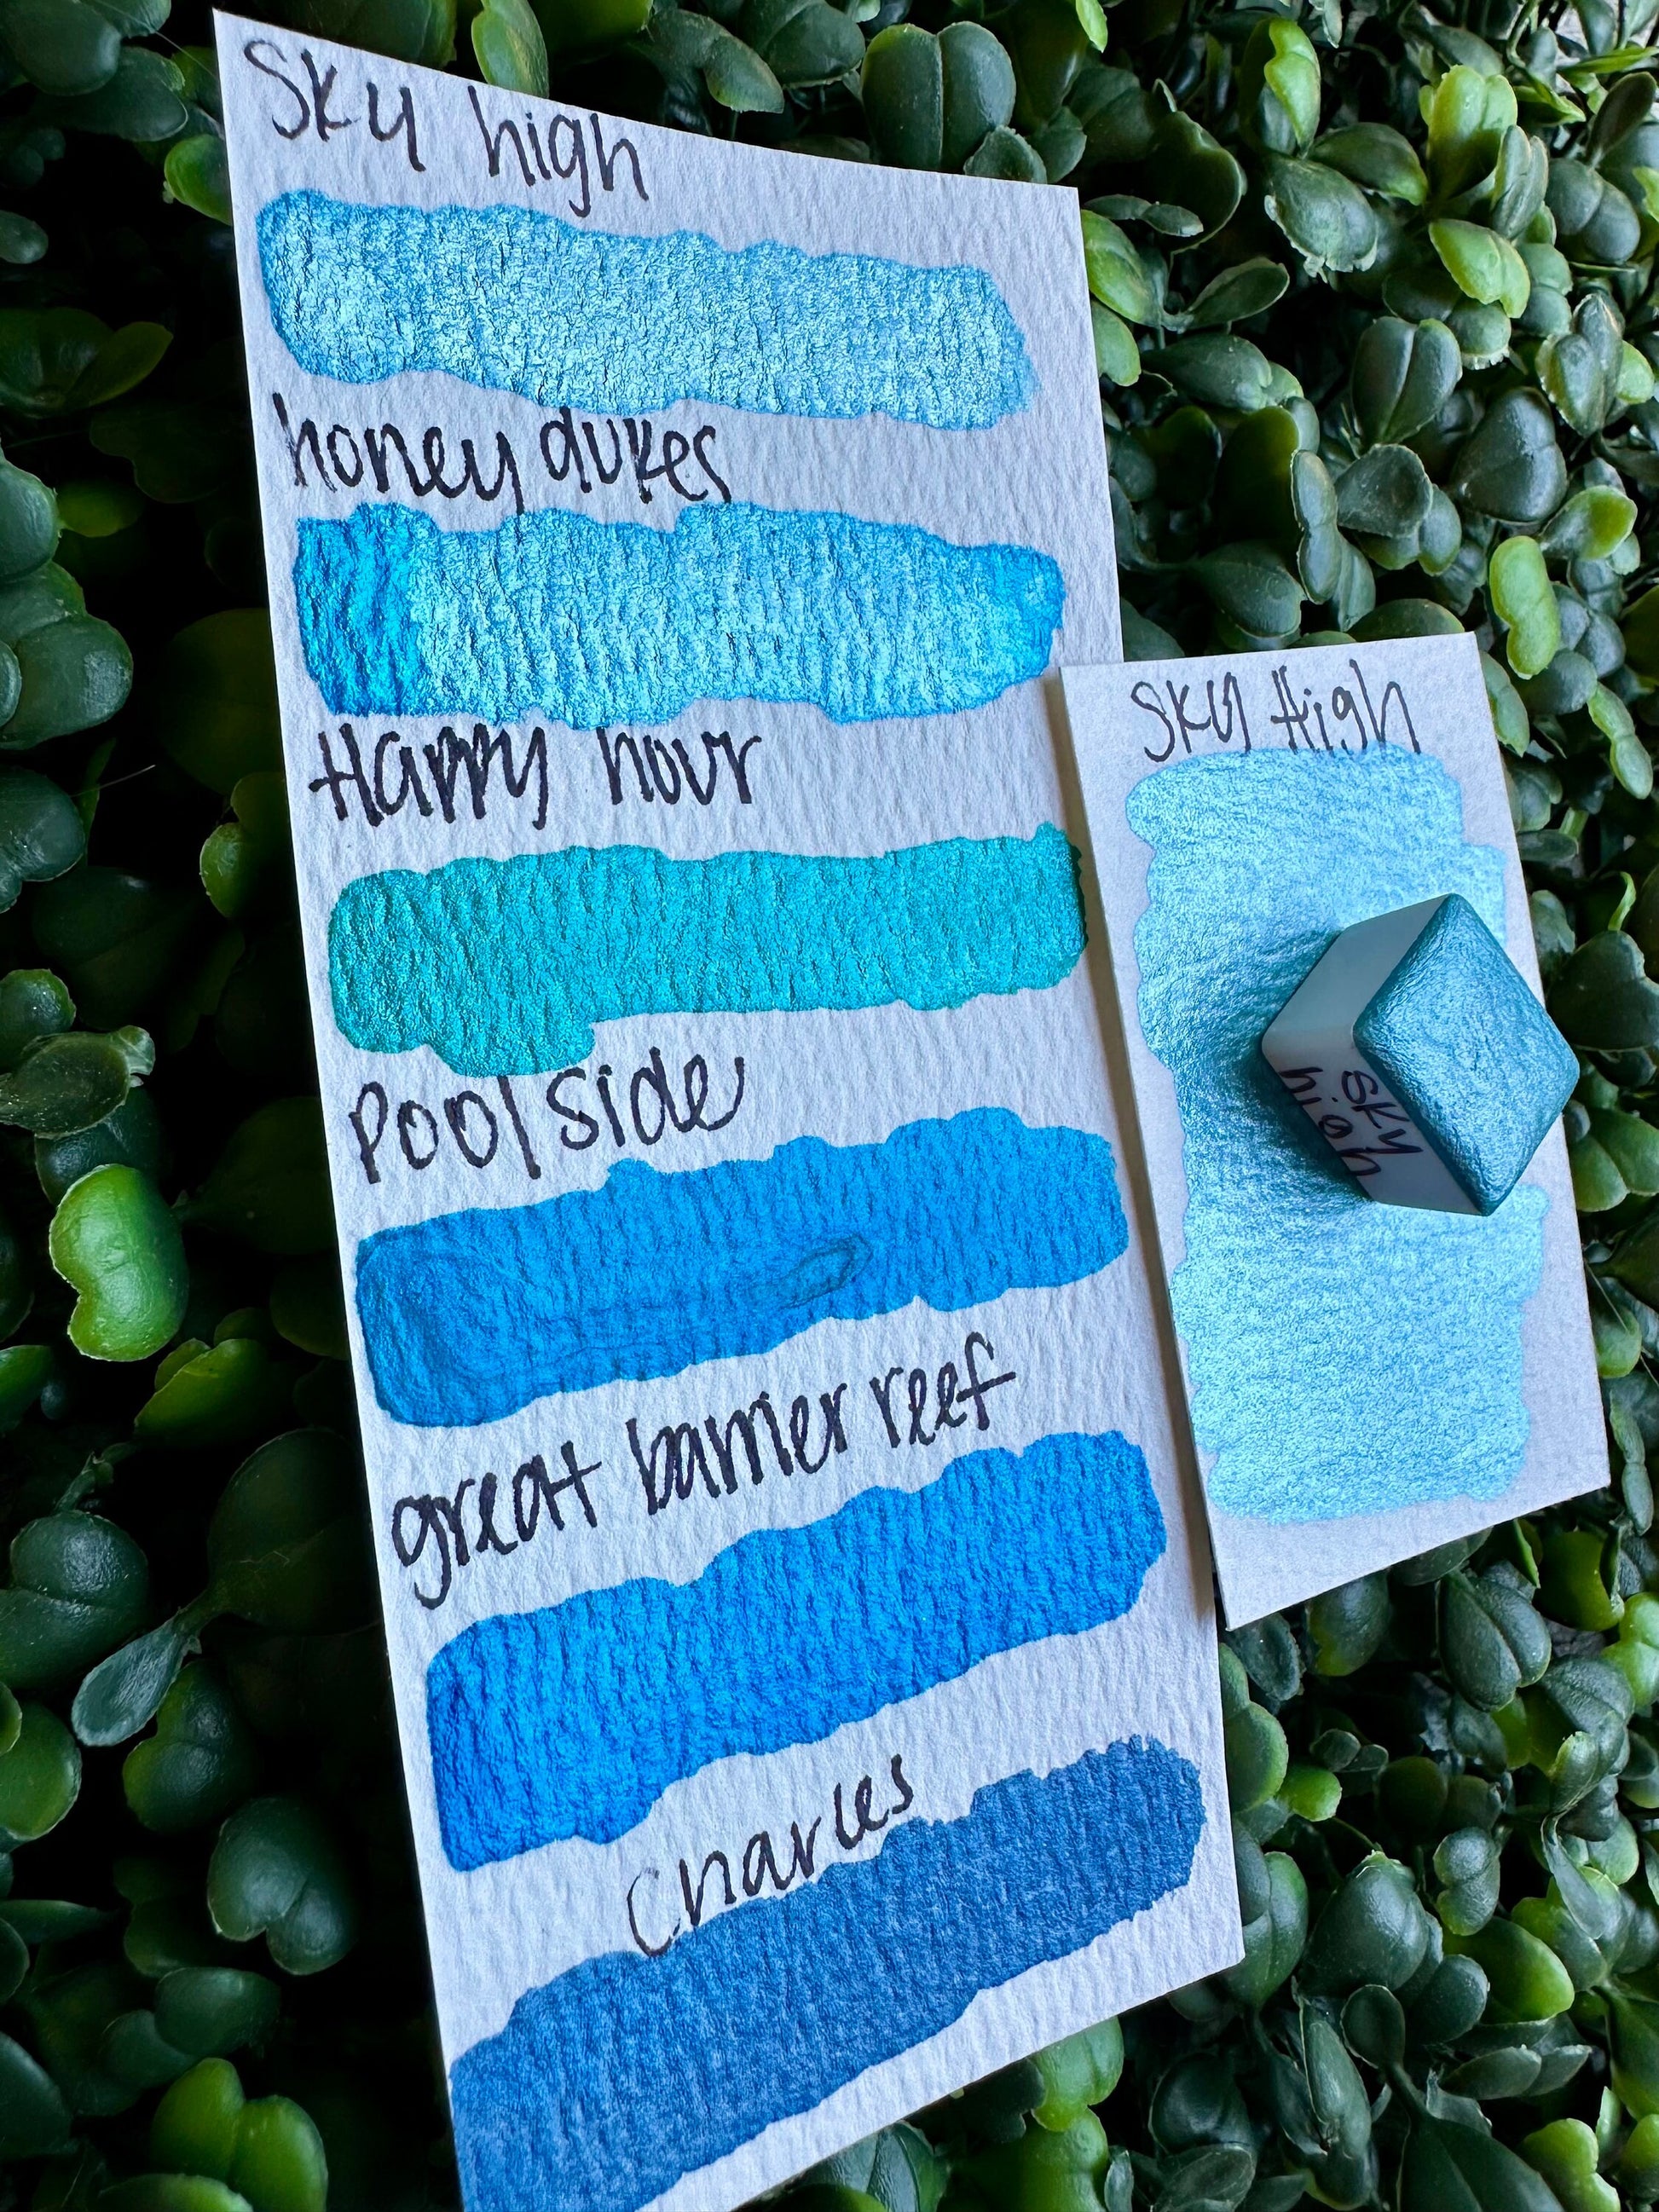 Sky high
honey dukes
Happy hour
Pool side
great barrier reef
Charles
Sky High
sky
high